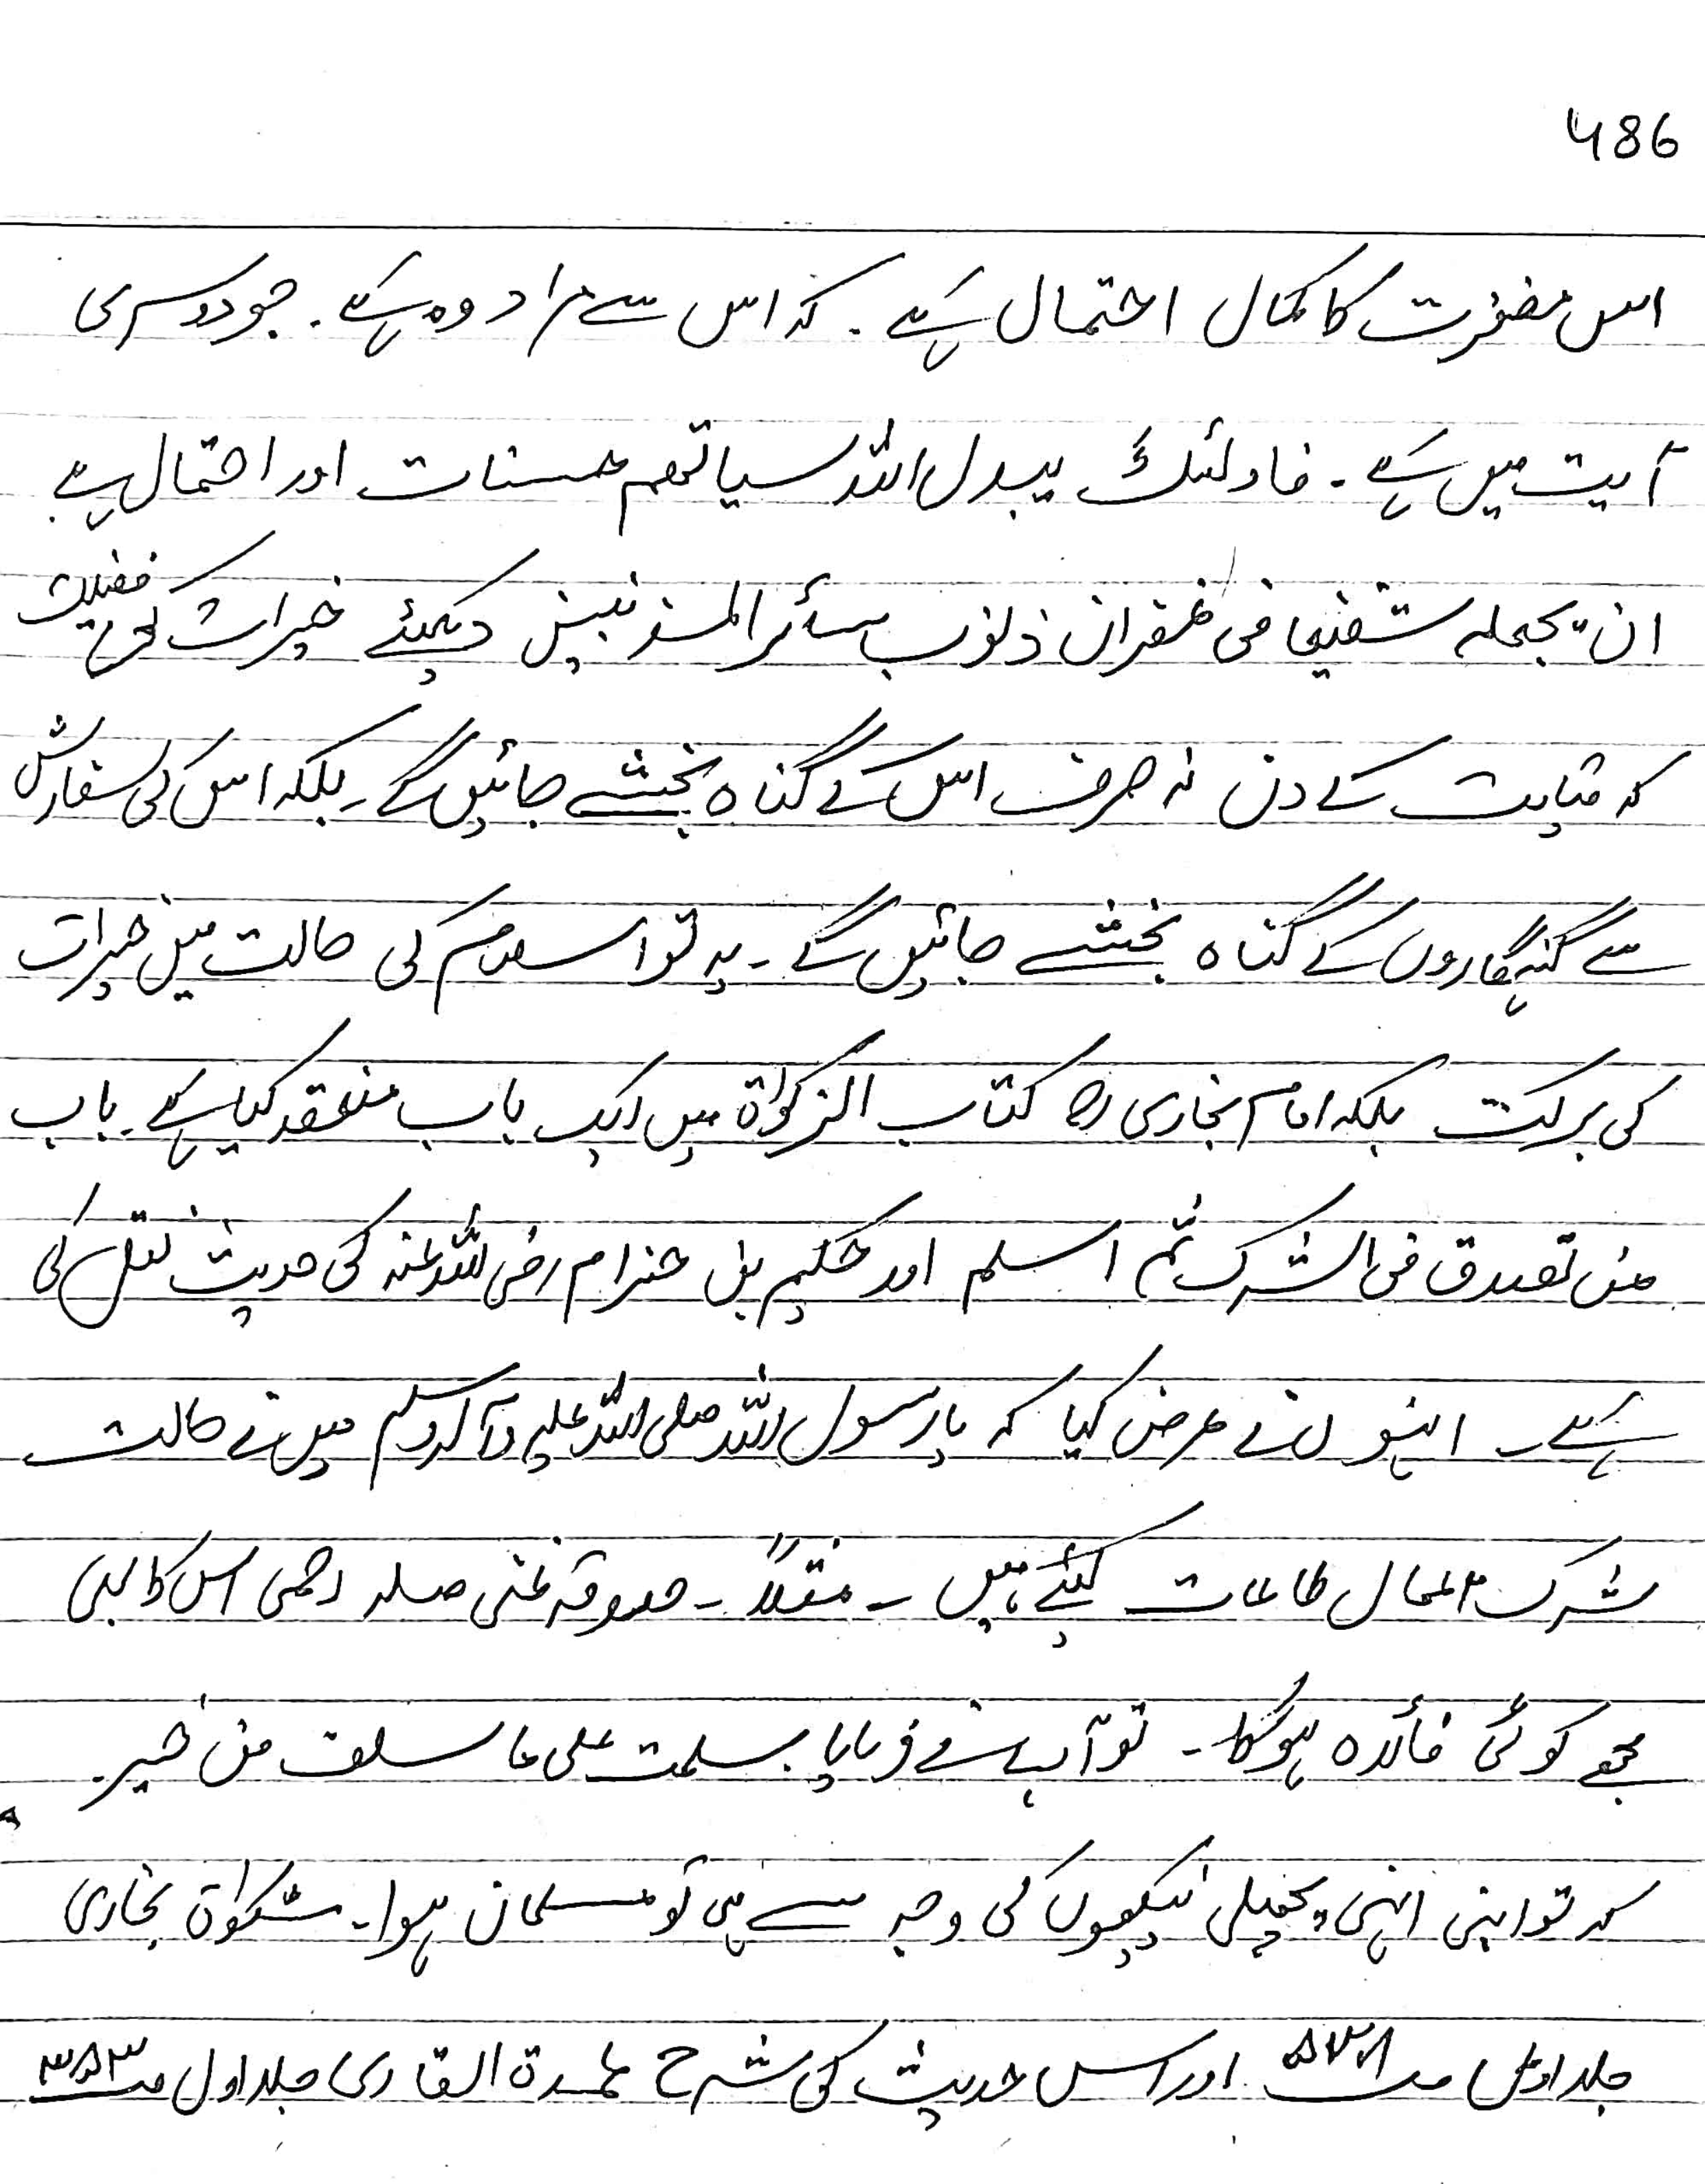 486
اس مغفرت کا کمال احتمال ہے۔ کہ اس سے مراد وہ ہے۔ جو دوسری
آیت میں ہے۔ فاولئک یبدل اللہ سیاتھم حسنات اور احتمال ہے
ان یجعلہ شفیعا فی غفران ذنوب سائر المذنبین دیکھئے خیرات کی فضیلت
کہ قیامت کے دن نہ صرف اس کے گناہ بخشے جائیں گے۔ بلکہ اس کی سفارش
سے گنہگاروں کے گناہ بخشے جائیں گے۔ یہ تو اسلام کی حالت میں خیرات
کی برکت بلکہ امام بخاری رح کتاب الزکواۃ میں ایک باب منعقد کیا ہے۔ باب
من تصدق فی الشرک ثم اسلم اور حکیم بن حزام رضی اللہ عنہ کی حدیث نقل کی
ہے۔ انہوں نے عرض کیا کہ یا رسول اللہ صلی اللہ علیہ وآلہ وسلم میں نے حالت
شرک اعمال طاعات کیئے ہیں۔ مثلاً۔ صدقہ غنی صلہ رحمی اس کا بھی
مجھے کوئی فائدہ ہوگا۔ تو آپ نے فرمایا۔ سلمت علی ما سلف من خیر۔
کہ تو اپنی انہی پچھلی نیکیوں کی وجہ سے ہی تو مسلمان ہوا۔ مشکواۃ بخاری
جلد اول اور اس حدیث کی شرح عمدۃ القاری جلد اول ص ۳۸۳